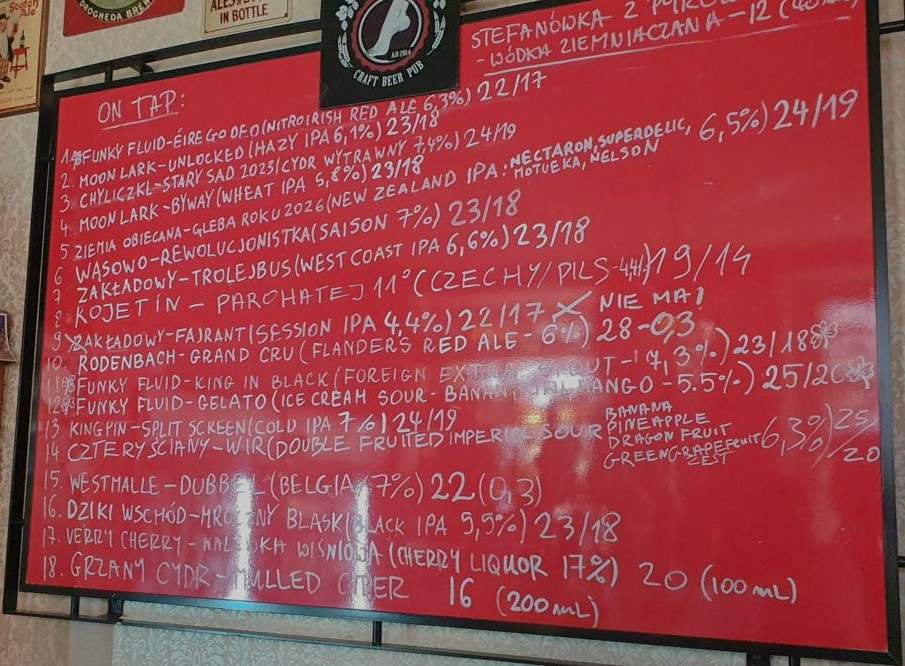 DROGHEDA BREW
IN BOTTLE
AD 2014
CRAFT BEER PUB
STEFANÓWKA Z
- WÓDKA ZIEMNIACZANA - 12
ON TAP:
1. FUNKY FLUID - ÉIRE GO DEO (NITRO IRISH RED ALE 6,3%) 22/17
2. MOON LARK - UNLOCKED (HAZY IPA 6,1%) 23/18
3. CHYLICZKI - STARY SAD 2023 (CYDR WYTRAWNY 7,4%) 24/19
4. MOON LARK - BYWAY (WHEAT IPA 5,8%) 23/18
5 ZIEMIA OBIECANA - GLEBA ROKU 2026 (NEW ZEALAND IPA: NECTARON, SUPERDELIC, MOTUEKA, NELSON 6,5%) 24/19
6 WĄSOWO - REWOLUCJONISTKA (SAISON 7%) 23/18
7 ZAKŁADOWY - TROLEJBUS (WEST COAST IPA 6,6%) 23/18
8. KOJETÍN - PAROHATEJ 11° (CZECHY/PILS - 4,4%) 19/14
9 ZAKŁADOWY - FAJRANT (SESSION IPA 4,4%) 22/17 X NIE MA!
10. RODENBACH - GRAND CRU (FLANDERS RED ALE - 6%) 28 - 0,3
11 FUNKY FLUID - KING IN BLACK (FOREIGN EXTRA STOUT - 7,3%) 23/18
12 FUNKY FLUID - GELATO (ICE CREAM SOUR - BANANA MANGO - 5.5%) 25/20
13. KINGPIN - SPLIT SCREEN (COLD IPA 7%) 24/19
14. CZTERY ŚCIANY - WIR (DOUBLE FRUITED IMPERIAL SOUR BANANA PINEAPPLE DRAGON FRUIT GREEN GRAPEFRUIT ZEST 6,3%) 25/20
15. WESTMALLE - DUBBEL (BELGIA 7%) 22 (0,3)
16. DZIKI WSCHÓD - MROCZNY BLASK (BLACK IPA 5,5%) 23/18
17. VERRY CHERRY - NALEWKA WIŚNIOWA (CHERRY LIQUOR 17%) 20 (100 mL)
18. GRZANY CYDR - MULLED CIDER 16 (200 mL)